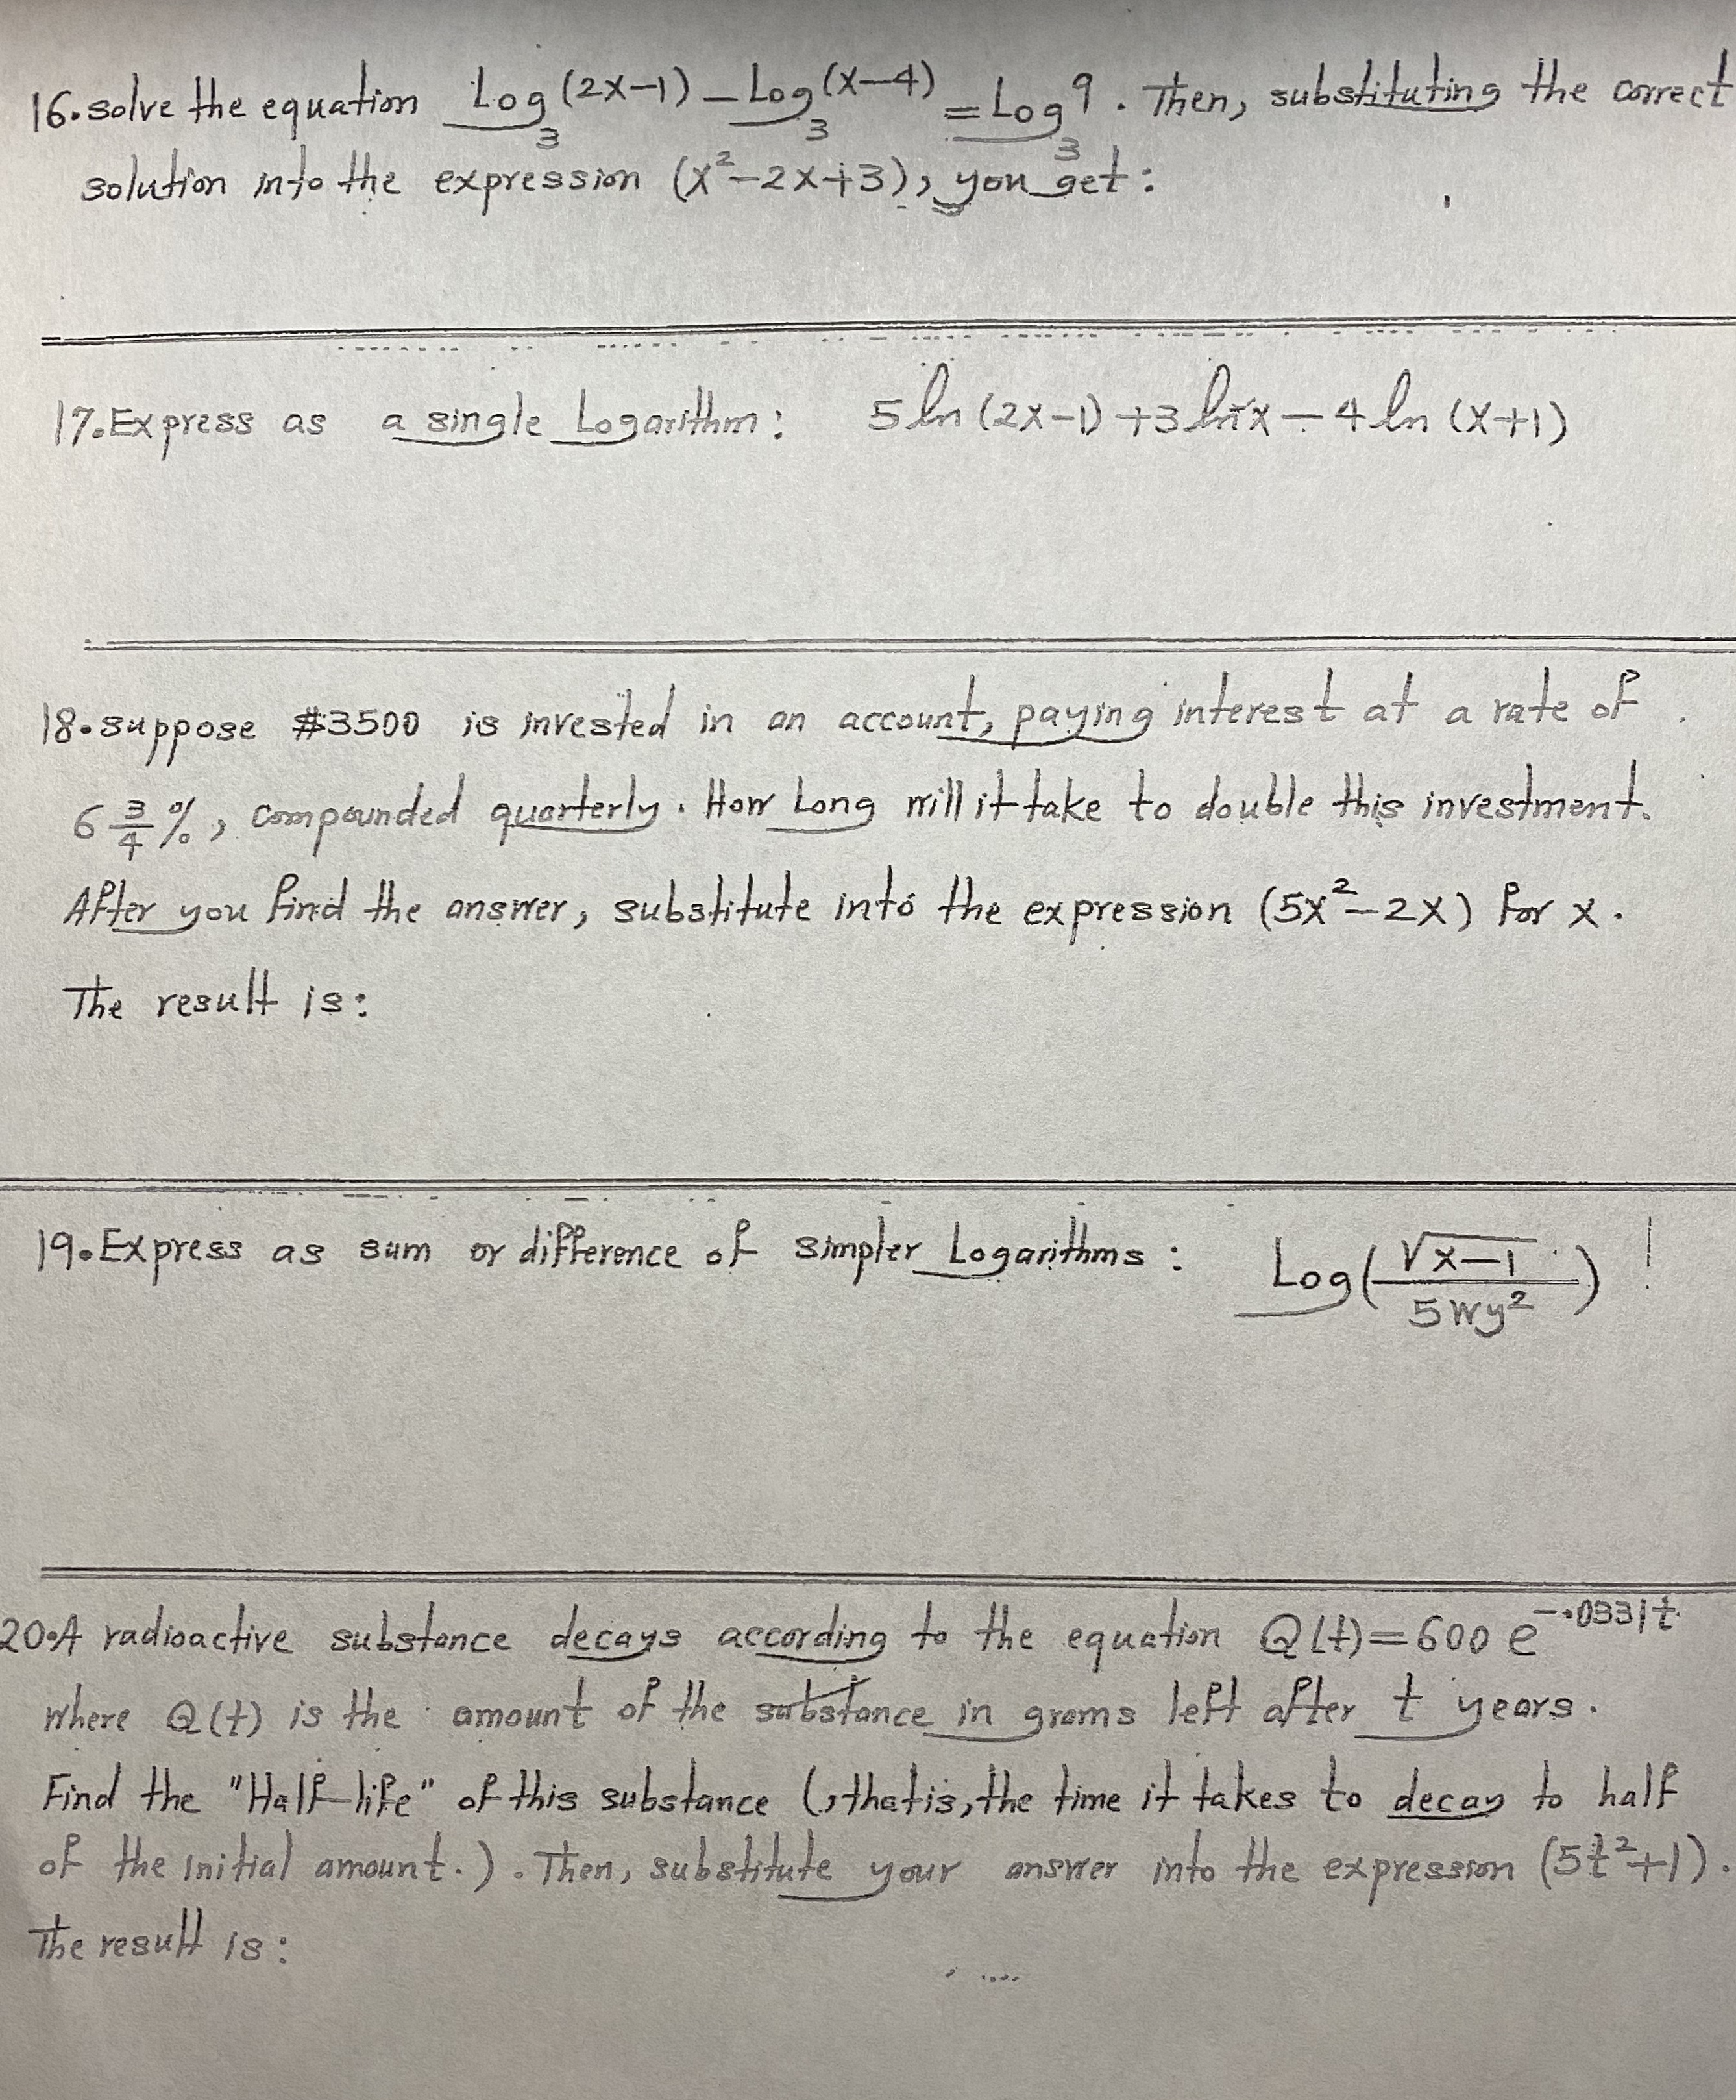 16. solve the equation Log₃(2x-1) - Log₃(x-4) = Log₃9. Then, substituting the correct
solution into the expression (x²-2x+3), you get:
17. Express as a single Logarithm: 5 ln (2x-1) +3 ln x - 4 ln (x+1)
18. suppose #3500 is invested in an account, paying interest at a rate of
6 3/4 %, compounded quarterly. How Long will it take to double this investment.
After you find the answer, substitute into the expression (5x²-2x) for x.
The result is:
19. Express as sum or difference of simpler Logarithms: Log(√(x-1) / 5wy²)
20. A radioactive substance decays according to the equation Q(t)=600 e^(-.0331t)
where Q(t) is the amount of the substance in grams left after t years.
Find the "Half-life" of this substance (, that is, the time it takes to decay to half
of the initial amount.). Then, substitute your answer into the expression (5t²+1).
The result is: